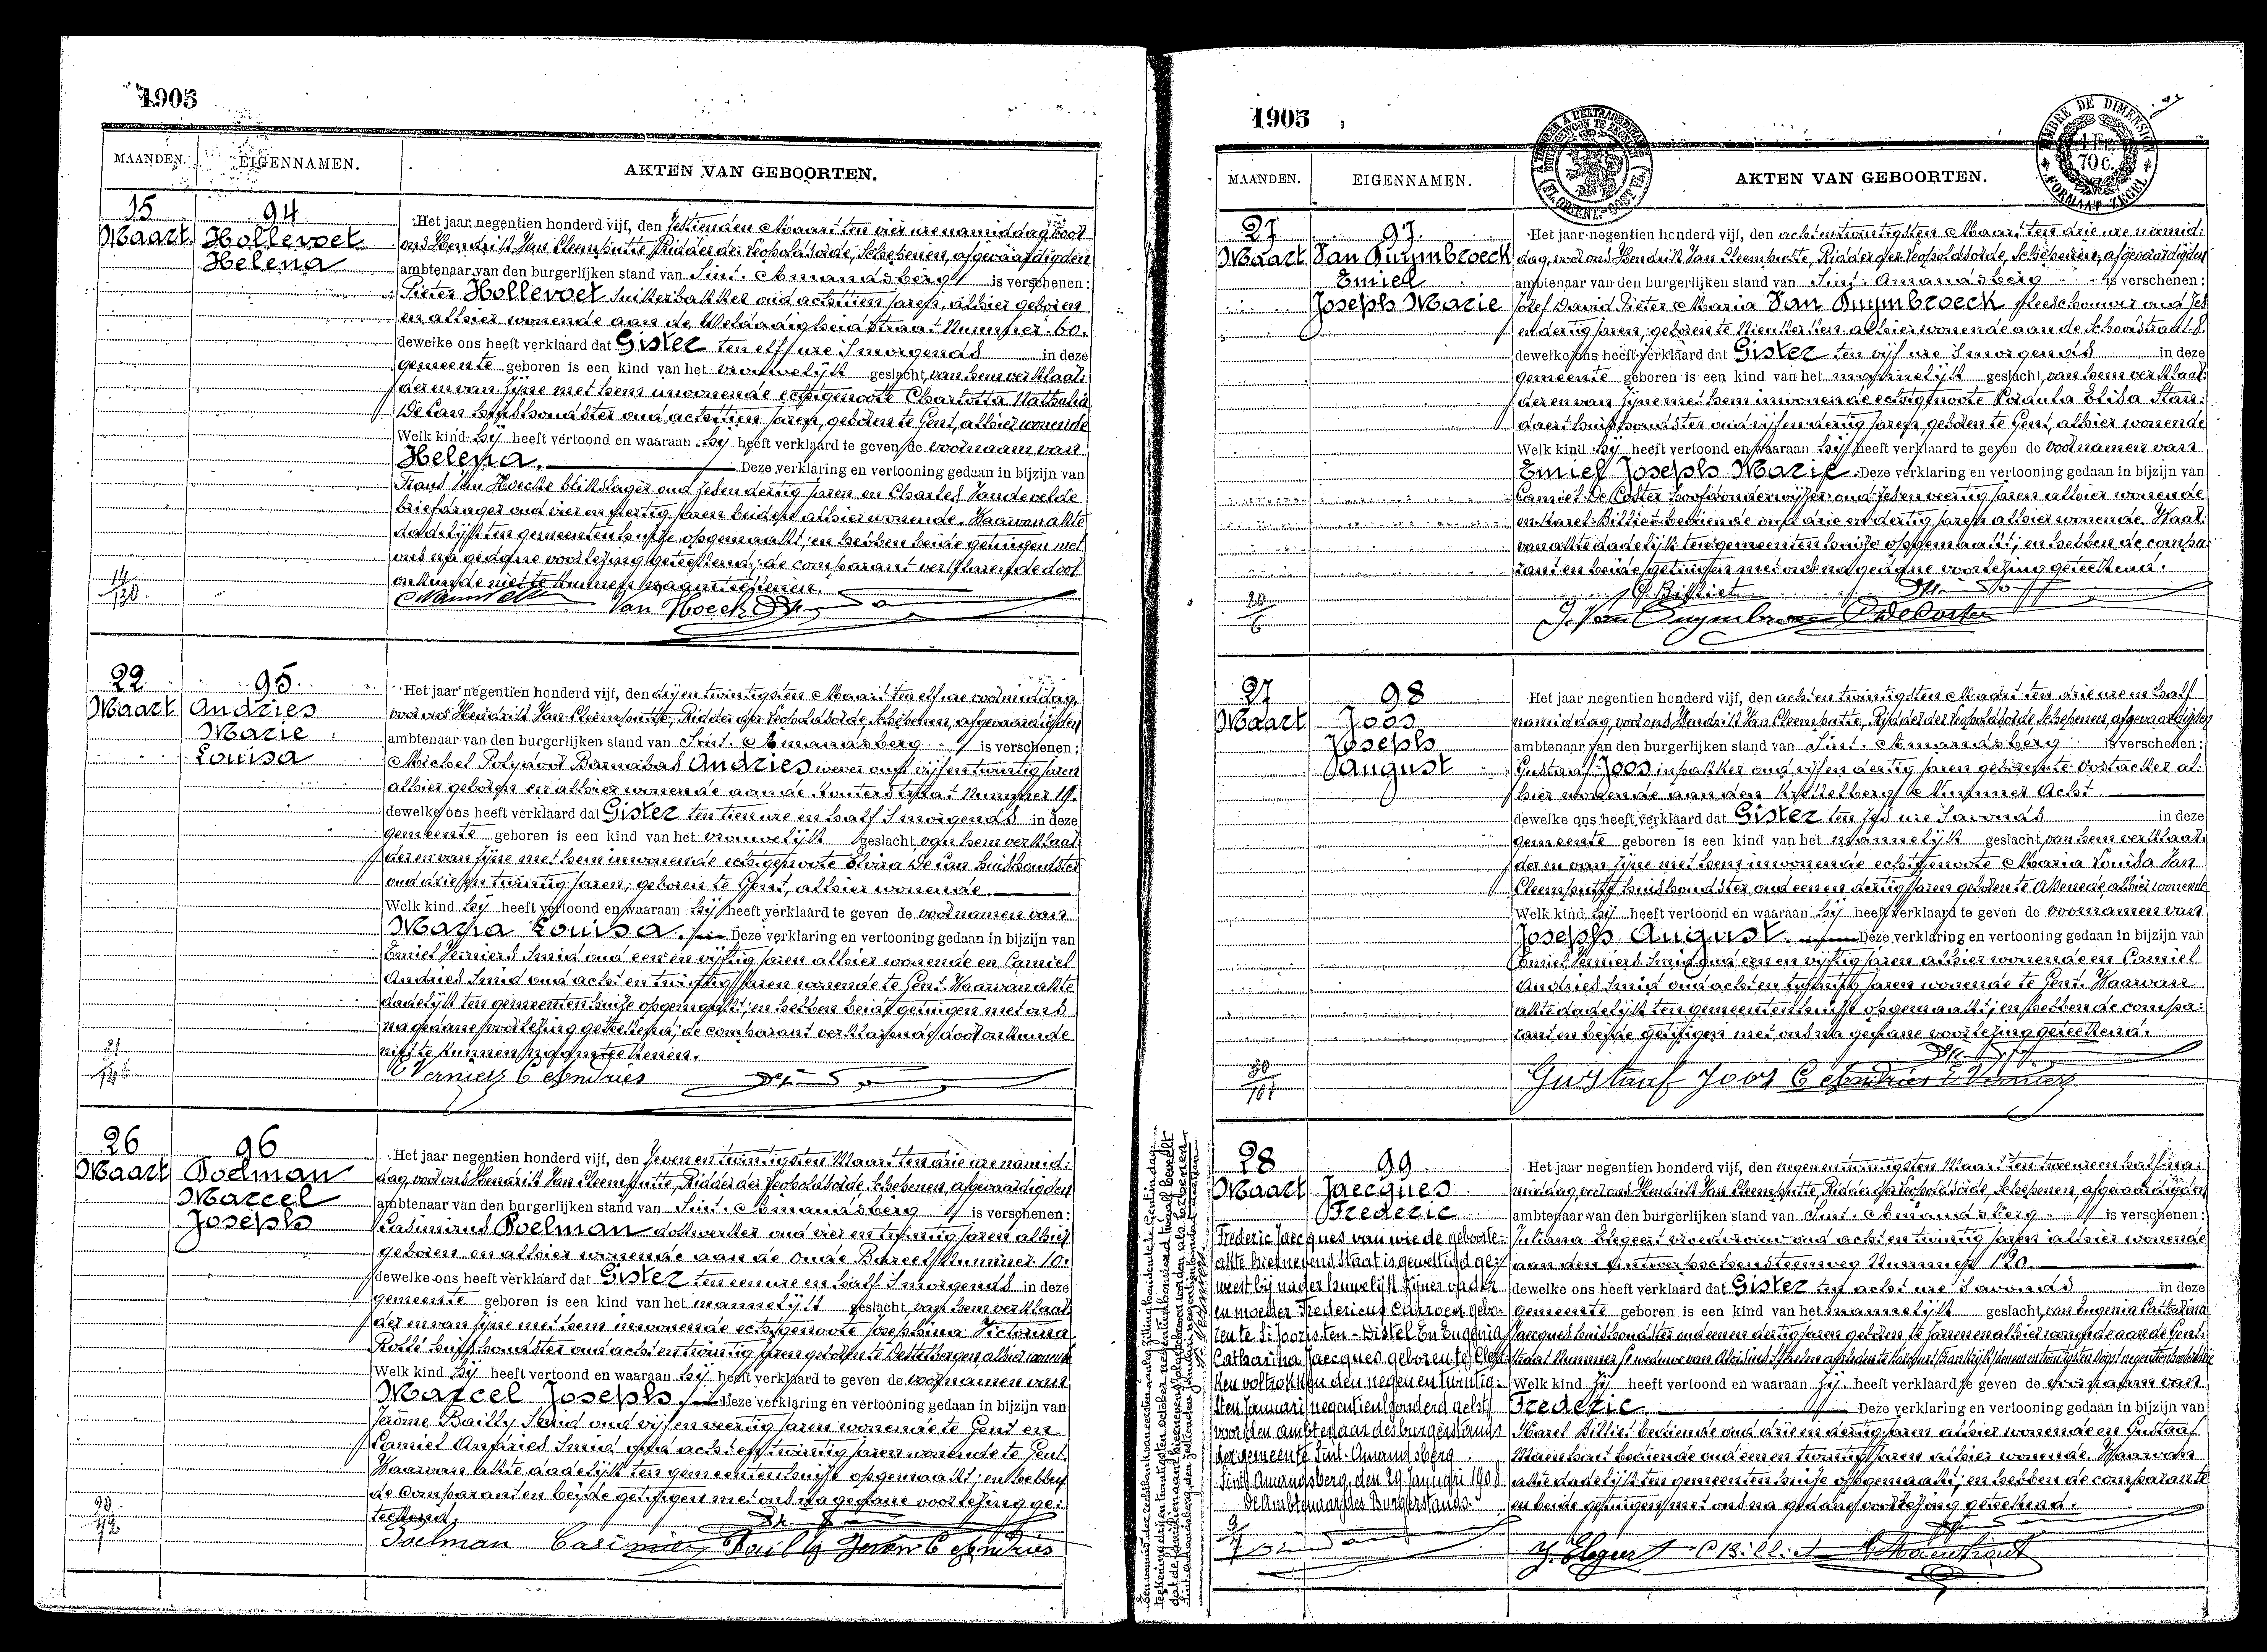 1905
MAANDEN. EIGENNAMEN. AKTEN VAN GEBOORTEN.
15 Maart
94
Hollevoet
Helena
Het jaar negentien honderd vijf, den zestienden Maart ten vier ure namiddag voor
ons Hendrik Van Cleemputte, Ridder der Leopoldsorde, Schepenen, afgevaardigden
ambtenaar van den burgerlijken stand van Sint-Amandsberg is verschenen:
Pieter Hollevoet suikerbakker oud achttien jaren, alhier geboren
en alhier wonende aan de Weldadigheidstraat Nummer 60.
dewelke ons heeft verklaard dat Gister ten elf ure 's morgends in deze
gemeente geboren is een kind van het vrouwelijk geslacht, van hem verklaar-
der en van zijne met hem inwonende echtgenoote Charlotta Nathalia
De Can huishoudster oud achttien jaren, geboren te Gent, alhier wonende
Welk kind hij heeft vertoond en waaraan hij heeft verklaard te geven de voornaam van
Helena. Deze verklaring en vertooning gedaan in bijzijn van
Frans Van Hoecke blikslager oud zesendertig jaren en Charles Vandevelde
briefdrager oud vier en dertig jaren beiden alhier wonende. Waarvan akte
dadelijk ten gemeentenhuize opgemaakt; en hebben beide getuigen met
ons na gedane voorlezing geteekend; de comparant verklarende door
onkunde niet te kunnen naamteekenen.
Van Hoecke
14/130.
22 Maart
95
Andries
Marie
Louisa
Het jaar negentien honderd vijf, den drijentwintigsten Maart ten elf ure voormiddag,
voor ons Hendrik Van Cleemputte, Ridder der Leopoldsorde, Schepenen, afgevaardigden
ambtenaar van den burgerlijken stand van Sint-Amandsberg is verschenen:
Michel Polydoor Barnabas Andries wever oud vijfentwintig jaren
alhier geboren en alhier wonende aan de Nummer 19.
dewelke ons heeft verklaard dat Gister ten tien ure en half 's morgends in deze
gemeente geboren is een kind van het vrouwelijk geslacht, van hem verklaar-
der en van zijne met hem inwonende echtgenoote Elvira De Can huishoudster
oud drie en twintig jaren, geboren te Gent, alhier wonende.
Welk kind hij heeft vertoond en waaraan hij heeft verklaard te geven de voornamen van
Maria Louisa. Deze verklaring en vertooning gedaan in bijzijn van
Emiel Verniers smid oud een en vijftig jaren alhier wonende en Camiel
Andries smid oud acht en twintig jaren wonende te Gent. Waarvan akte
dadelijk ten gemeentenhuize opgemaakt; en hebben beide getuigen met ons
na gedane voorlezing geteekend; de comparant verklarende door onkunde
niet te kunnen naamteekenen.
E Verniers C Andries
26 Maart
96
Poelman
Marcel
Joseph
Het jaar negentien honderd vijf, den zevenentwintigsten Maart ten drie ure namid-
dag, voor ons Hendrik Van Cleemputte, Ridder der Leopoldsorde, Schepenen, afgevaardigden
ambtenaar van den burgerlijken stand van Sint-Amandsberg is verschenen:
Casimirus Poelman dokwerker oud vier en twintig jaren alhier
geboren en alhier wonende aan de Oude Bareel Nummer 10.
dewelke ons heeft verklaard dat Gister ten een ure en half 's morgends in deze
gemeente geboren is een kind van het mannelijk geslacht, van hem verklaar-
der en van zijne met hem inwonende echtgenoote Josephina Victorina
huishoudster oud acht en twintig jaren geboren te Destelbergen, alhier wonende
Welk kind hij heeft vertoond en waaraan hij heeft verklaard te geven de voornamen van
Marcel Joseph. Deze verklaring en vertooning gedaan in bijzijn van
Jerôme Bailly smid oud vijf en veertig jaren wonende te Gent en
Camiel Andries smid oud acht en twintig jaren wonende te Gent.
Waarvan akte dadelijk ten gemeentenhuize opgemaakt; en hebben
de comparant en beide getuigen met ons na gedane voorlezing ge-
teekend.
Poelman Casimier Bailly Jerôm C Andries
1905
A TIMBRER A L'EXTRAORDINAIRE
TIMBRE DE DIMENSION
1 Fr. 70 c.
FORMAAT ZEGEL
MAANDEN. EIGENNAMEN. AKTEN VAN GEBOORTEN.
27 Maart
97.
Van Puymbroeck
Emiel
Joseph Marie
Het jaar negentien honderd vijf, den achtentwintigsten Maart ten drie ure namid-
dag, voor ons Hendrik Van Cleemputte, Ridder der Leopoldsorde, Schepenen, afgevaardigden
ambtenaar van den burgerlijken stand van Sint-Amandsberg is verschenen:
Jozef David Pieter Maria Van Puymbroeck vleeschouwer oud zes
en dertig jaren, geboren te Nieukerken alhier wonende aan de Schoolstraat 8.
dewelke ons heeft verklaard dat Gister ten vijf ure 's morgends in deze
gemeente geboren is een kind van het mannelijk geslacht, van hem verklaar-
der en van zijne met hem inwonende echtgenoote Elisa Stan-
daert huishoudster oud vijf en dertig jaren, geboren te Gent, alhier wonende
Welk kind hij heeft vertoond en waaraan hij heeft verklaard te geven de voornamen van
Emiel Joseph Marie. Deze verklaring en vertooning gedaan in bijzijn van
Camiel De Coster hoofdonderwijzer oud zesenveertig jaren alhier wonende
en Karel Billiet bediende oud drie en dertig jaren alhier wonende. Waar-
van akte dadelijk ten gemeentenhuize opgemaakt; en hebben de compa-
rant en beide getuigen met ons na gedane voorlezing geteekend.
C Billiet
J. Van Puymbroeck C De Coster
20/6
27 Maart
98
Joos
Joseph
August
Het jaar negentien honderd vijf, den achtentwintigsten Maart ten drie ure en half
namiddag, voor ons Hendrik Van Cleemputte, Ridder der Leopoldsorde, Schepenen, afgevaardigden
ambtenaar van den burgerlijken stand van Sint-Amandsberg is verschenen:
Gustaaf Joos inpakker oud vijf en dertig jaren geboren te Oostacker al-
hier wonende aan den Krekelberg Nummer Acht
dewelke ons heeft verklaard dat Gister ten zes ure 's avonds in deze
gemeente geboren is een kind van het mannelijk geslacht, van hem verklaar-
der en van zijne met hem inwonende echtgenoote Maria Louisa Van
Cleemputte huishoudster oud een en dertig jaren geboren te Assenede, alhier wonende
Welk kind hij heeft vertoond en waaraan hij heeft verklaard te geven de voornamen van
Joseph August. Deze verklaring en vertooning gedaan in bijzijn van
Emiel Verniers smid oud een en vijftig jaren alhier wonende en Camiel
Andries smid oud acht en twintig jaren wonende te Gent. Waarvan
akte dadelijk ten gemeentenhuize opgemaakt; en hebben de compa-
rant en beide getuigen met ons na gedane voorlezing geteekend.
Gustaaf Joos C Andries E Verniers
30/101
28 Maart
99
Jaecques
Frederic
Het jaar negentien honderd vijf, den negenentwintigsten Maart ten twee ure en half na-
middag, voor ons Hendrik Van Cleemputte, Ridder der Leopoldsorde, Schepenen, afgevaardigden
ambtenaar van den burgerlijken stand van Sint-Amandsberg is verschenen:
Juliana Elegeert vroedvrouw oud acht en twintig jaren alhier wonende
aan den Antwerpschensteenweg Nummer 120.
dewelke ons heeft verklaard dat Gister ten acht ure 's avonds in deze
gemeente geboren is een kind van het mannelijk geslacht, van Eugenia Catharina
Jaecques huishoudster oud een en dertig jaren geboren te en alhier wonende aan de Gent-
straat Nummer weduwe van
Welk kind zij heeft vertoond en waaraan zij heeft verklaard te geven de voornaam van
Frederic. Deze verklaring en vertooning gedaan in bijzijn van
Karel Billiet bediende oud drie en dertig jaren alhier wonende en Gustaaf
Maenhout bediende oud een en twintig jaren alhier wonende. Waarvan
akte dadelijk ten gemeentenhuize opgemaakt; en hebben de comparante
en beide getuigen met ons na gedane voorlezing geteekend.
J. Elegeert C Billiet G Maenhout
Frederic Jaecques van wie de geboorte-
akte hiernevens staat is gewettigd ge-
weest bij nader huwelijk zijner vader
en moeder Fredericus Carroen gebo-
ren te St Jooris-ten-Distel En Eugenia
Catharina Jaecques geboren te
ken voltrokken den negenentwintig-
sten Januari negentienhonderd acht
voor den ambtenaar des burgerstands
der gemeente Sint-Amandsberg
Sint Amandsberg, den 29 Januari 1908
De Ambtenaar des Burgerstands.